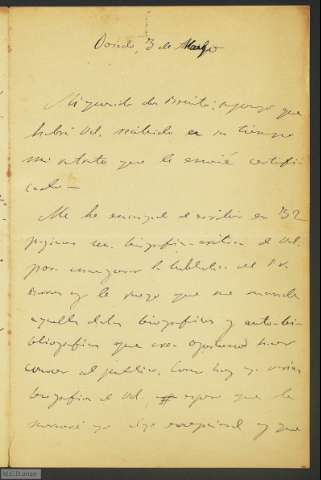 Oviedo, 3 de Mayo
Mi querido don Benito: supongo que
habrá Vd. recibido en su tiempo
mi retrato que le envié certifi
cado —
Me he encargado de escribir en 32
páginas una biografía crítica de Vd.
para inaugurar la biblioteca del Sr.
y le ruego que me mande
aquellos datos biográficos y auto-bi
bliográficos que crea oportuno hacer
conocer al público. Como hay ya varias
biografías de Vd. espero que le
merezca yo algo excepcional y que